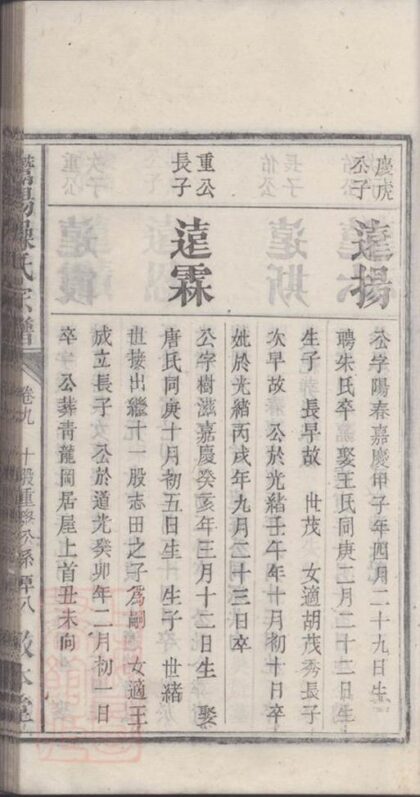 慶虎
公子
遠揚
公字陽春嘉慶甲子年四月二十九日生
聘朱氏卒 娶王氏同庚二月二十二日生
生子 長早故 世茂 女適胡茂秀長子
次早故 公於光緒壬午年十月初十日卒
妣於光緒丙戌年九月二十三日卒
重公
長子
遠霖
公字樹滋嘉慶癸亥年三月十二日生 娶
唐氏同庚十月初五日生 生子 世緒
世 出繼十一股志田之子為嗣 女適王
成立長子 公於道光癸卯年二月初一日
卒 公葬青龍岡居屋上首丑未向
氏宗譜
卷九
十
重
公系
八
敘本堂